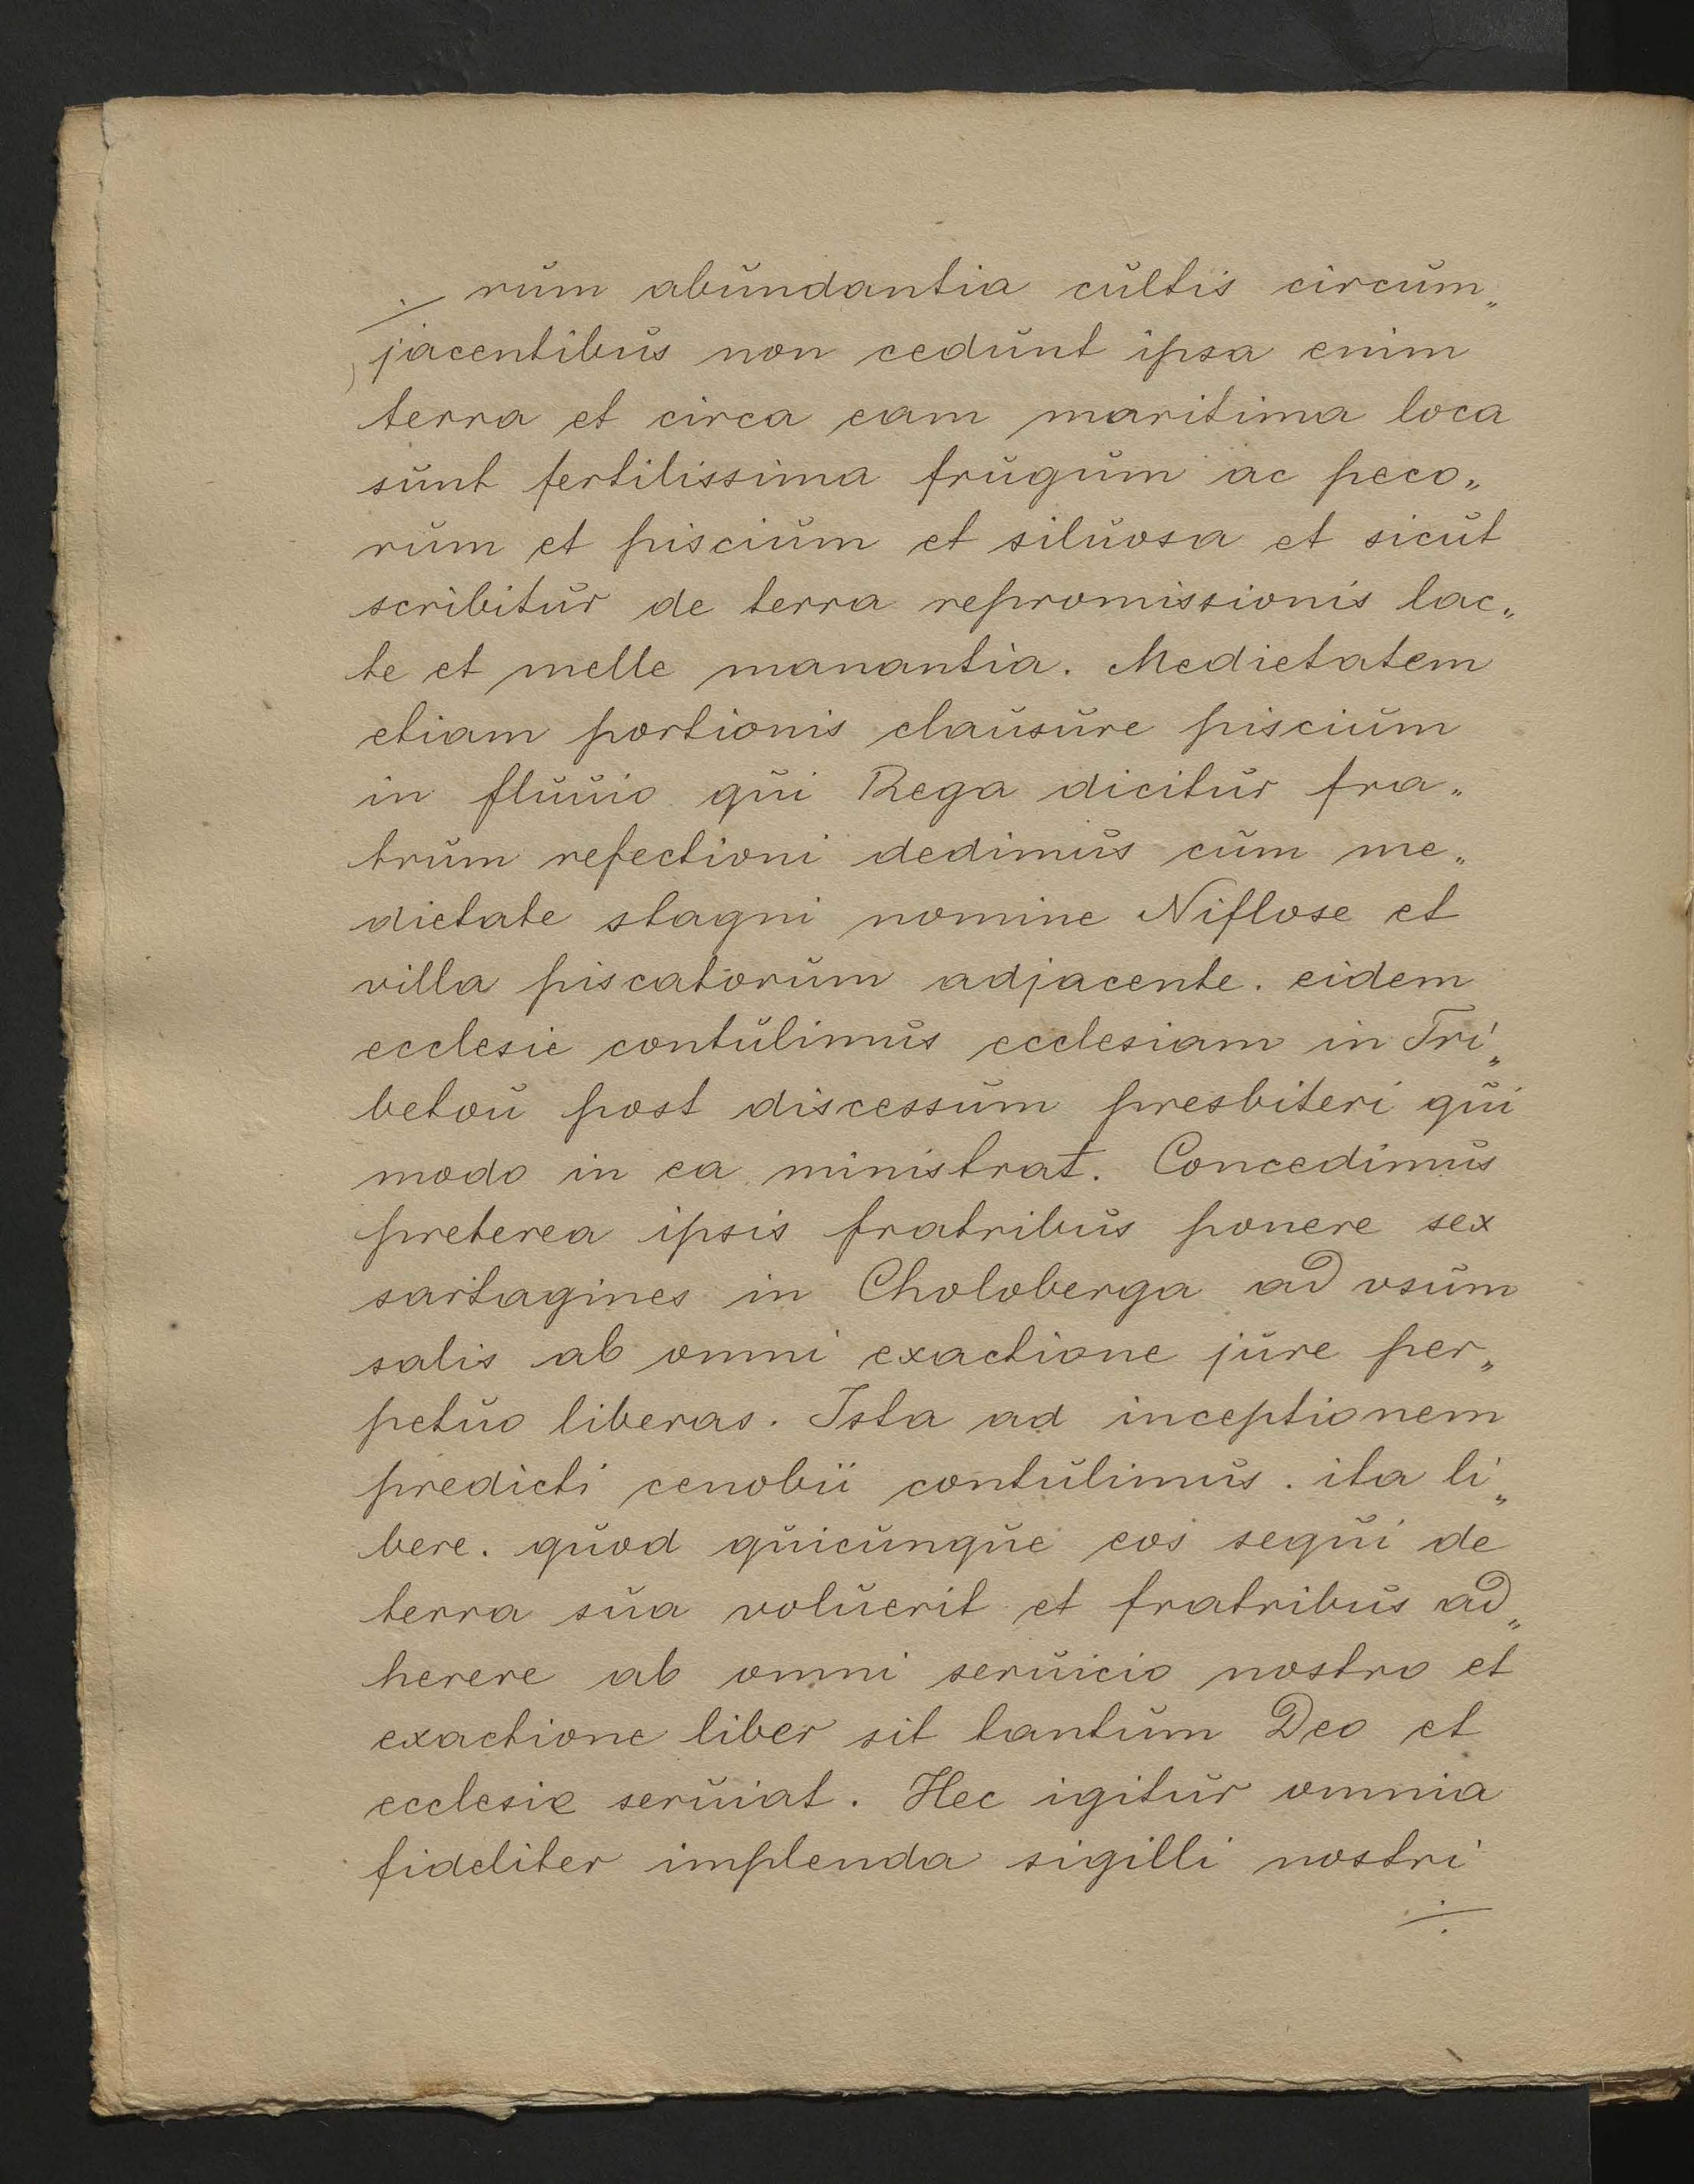 rum abundantia cultis circum„
jacentibus non cedunt ipsa enim
terra et circa eam maritima loca
sunt fertilissima frugum ac peco„
rum et piscium et siluosa et sicut
scribitur de terra repromissionis lac„
te et melle manantia. Medietatem
etiam portionis clausure piscium
in fluuio qui Rega dicitur fra„
trum refectioni dedimus cum me„
dietate stagni nomine Niflose et
villa piscatorum adjacente. eidem
ecclesie contulimus ecclesiam in Tri„
betou post discessum presbiteri qui
modo in ea ministrat. Concedimus
preterea ipsis fratribus ponere sex
sartagines in Choloberga ad vsum
salis ab omni exactione jure per„
petuo liberas. Ista ad inceptionem
predicti cenobii contulimus. ita li„
bere. quod quicunque eos sequi de
terra sua voluerit et fratribus ad„
herere ab omni seruicio nostro et
exactione liber sit tantum Deo et
ecclesie seruiat. Hec igitur omnia
fideliter implenda sigilli nostri